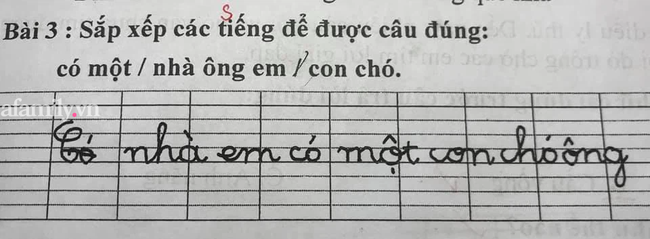 S
Bài 3 : Sắp xếp các tiếng để được câu đúng:
có một / nhà ông em / con chó.
afamily.vn
nhà em có một con chó ông